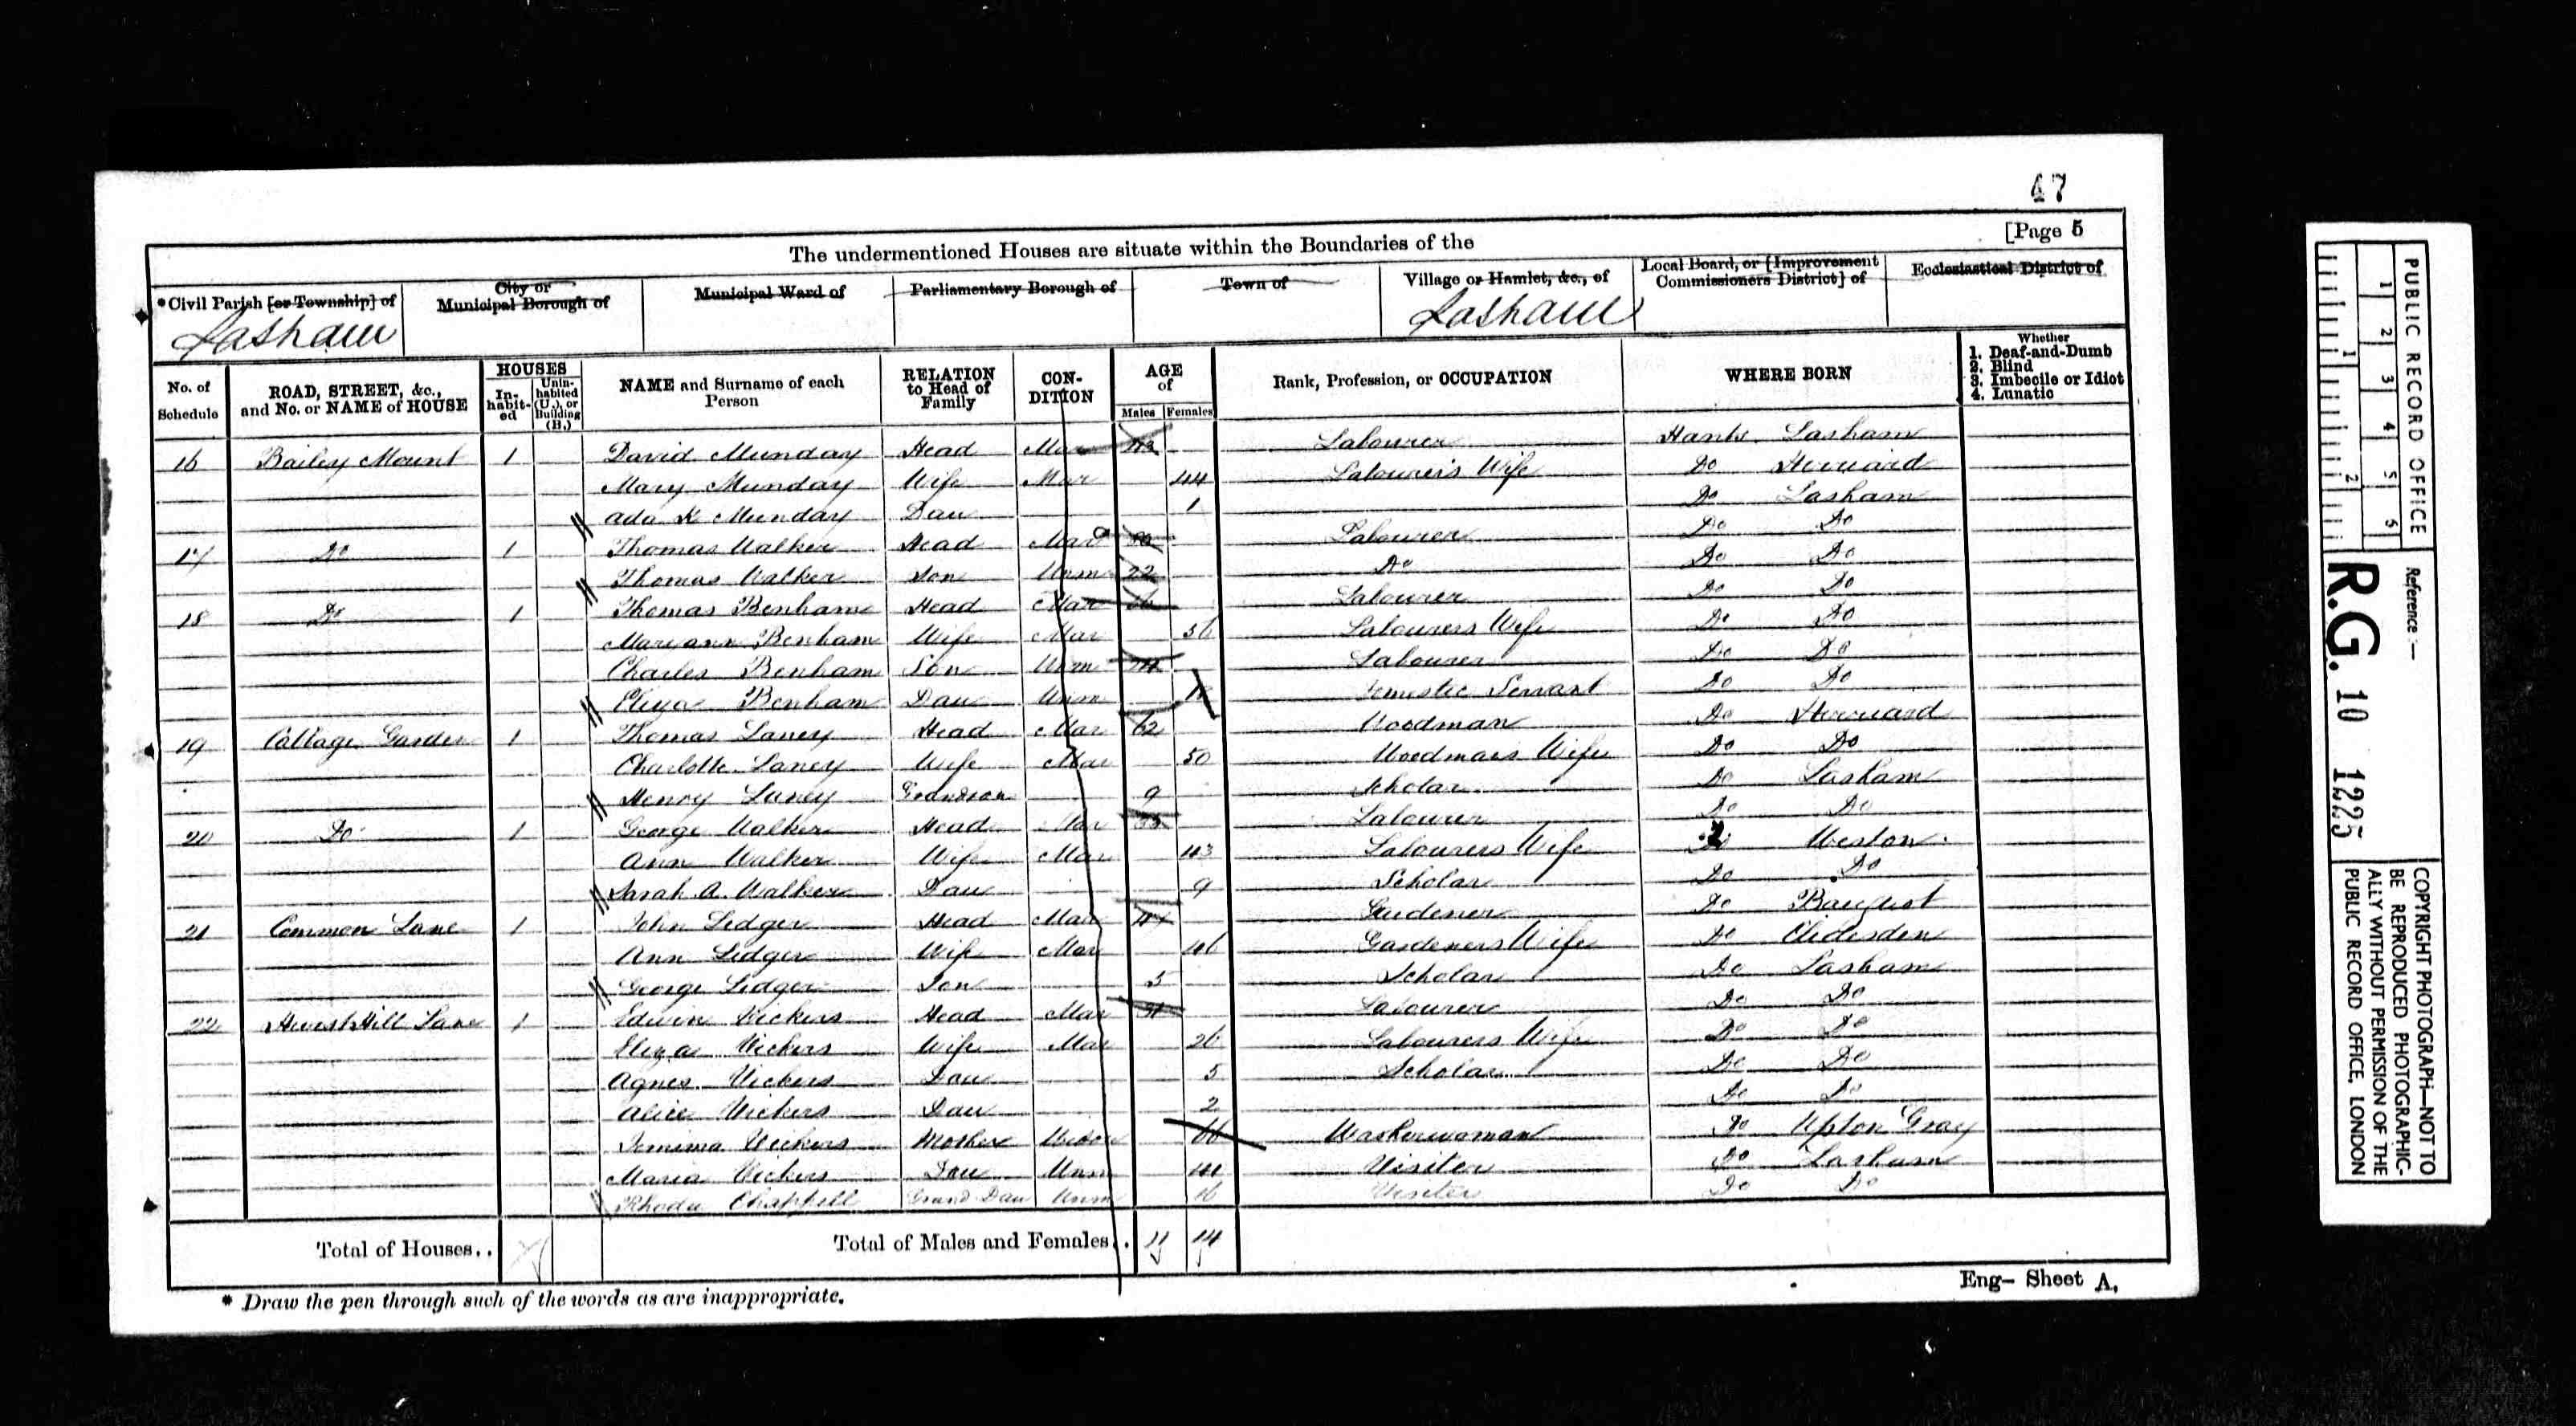 47
[Page 5
The undermentioned Houses are situate within the Boundaries of the
*Civil Parish [or Township] of
City or Municipal Borough of
Municipal Ward of
Parliamentary Borough of
Town of
Village or Hamlet, &c., of
Local Board, or [Improvement Commissioners District] of
Ecclesiastical District of
Lasham
Lasham
No. of Schedule
ROAD, STREET, &c., and No. or NAME of HOUSE
HOUSES
In-habit-ed
Unin-habited (U.), or Building (B.)
NAME and Surname of each Person
RELATION to Head of Family
CON-DITION
AGE of
Males Females
Rank, Profession, or OCCUPATION
WHERE BORN
Whether
1. Deaf-and-Dumb
2. Blind
3. Imbecile or Idiot
4. Lunatic
16 Bailey Mount 1 David Munday Head Mar 43 Labourer Hants Lasham
Mary Munday Wife Mar 44 Labourer's Wife Do Herriard
Ada K Munday Dau 1 Do Lasham
17 Do 1 Thomas Walker Head Mar Labourer Do Do
Thomas Walker Son Unm 22 Do Do Do
18 Do 1 Thomas Benham Head Mar Labourer Do Do
Mariann Benham Wife Mar 56 Labourers Wife Do Do
Charles Benham Son Unm 24 Labourer Do Do
Eliza Benham Dau Unm Domestic Servant Do Do
19 Cottage Garden 1 Thomas Laney Head Mar 62 Woodman Do Herriard
Charlotte Laney Wife Mar 50 Woodmans Wife Do Do
Henry Laney Grandson 9 Scholar Do Lasham
20 Do 1 George Walker Head Mar Labourer Do Do
Ann Walker Wife Mar 43 Labourers Wife Do Weston
Sarah A. Walker Dau 9 Scholar Do Do
21 Common Lane 1 John Ledger Head Mar Gardener Do
Ann Ledger Wife Mar 46 Gardeners Wife Do Cliddesden
George Ledger Son 5 Scholar Do Lasham
22 Hill Lane 1 Edwin Vickers Head Mar 31 Labourer Do Do
Eliza Vickers Wife Mar 26 Labourers Wife Do Do
Agnes Vickers Dau 5 Scholar Do Do
Alice Vickers Dau 2 Do Do
Jemima Vickers Mother Widow 66 Washerwoman Do Upton Gray
Maria Vickers Dau Unm Visiter Do Lasham
Rhoda Chappell Grand Dau Unm 16 Visiter Do Do
Total of Houses..
Total of Males and Females.. 11 14
* Draw the pen through such of the words as are inappropriate.
Eng- Sheet A.
PUBLIC RECORD OFFICE
1 2 3 4 5 6
1 2
Reference :-
R.G. 10 1225
COPYRIGHT PHOTOGRAPH—NOT TO
BE REPRODUCED PHOTOGRAPHIC-
ALLY WITHOUT PERMISSION OF THE
PUBLIC RECORD OFFICE, LONDON